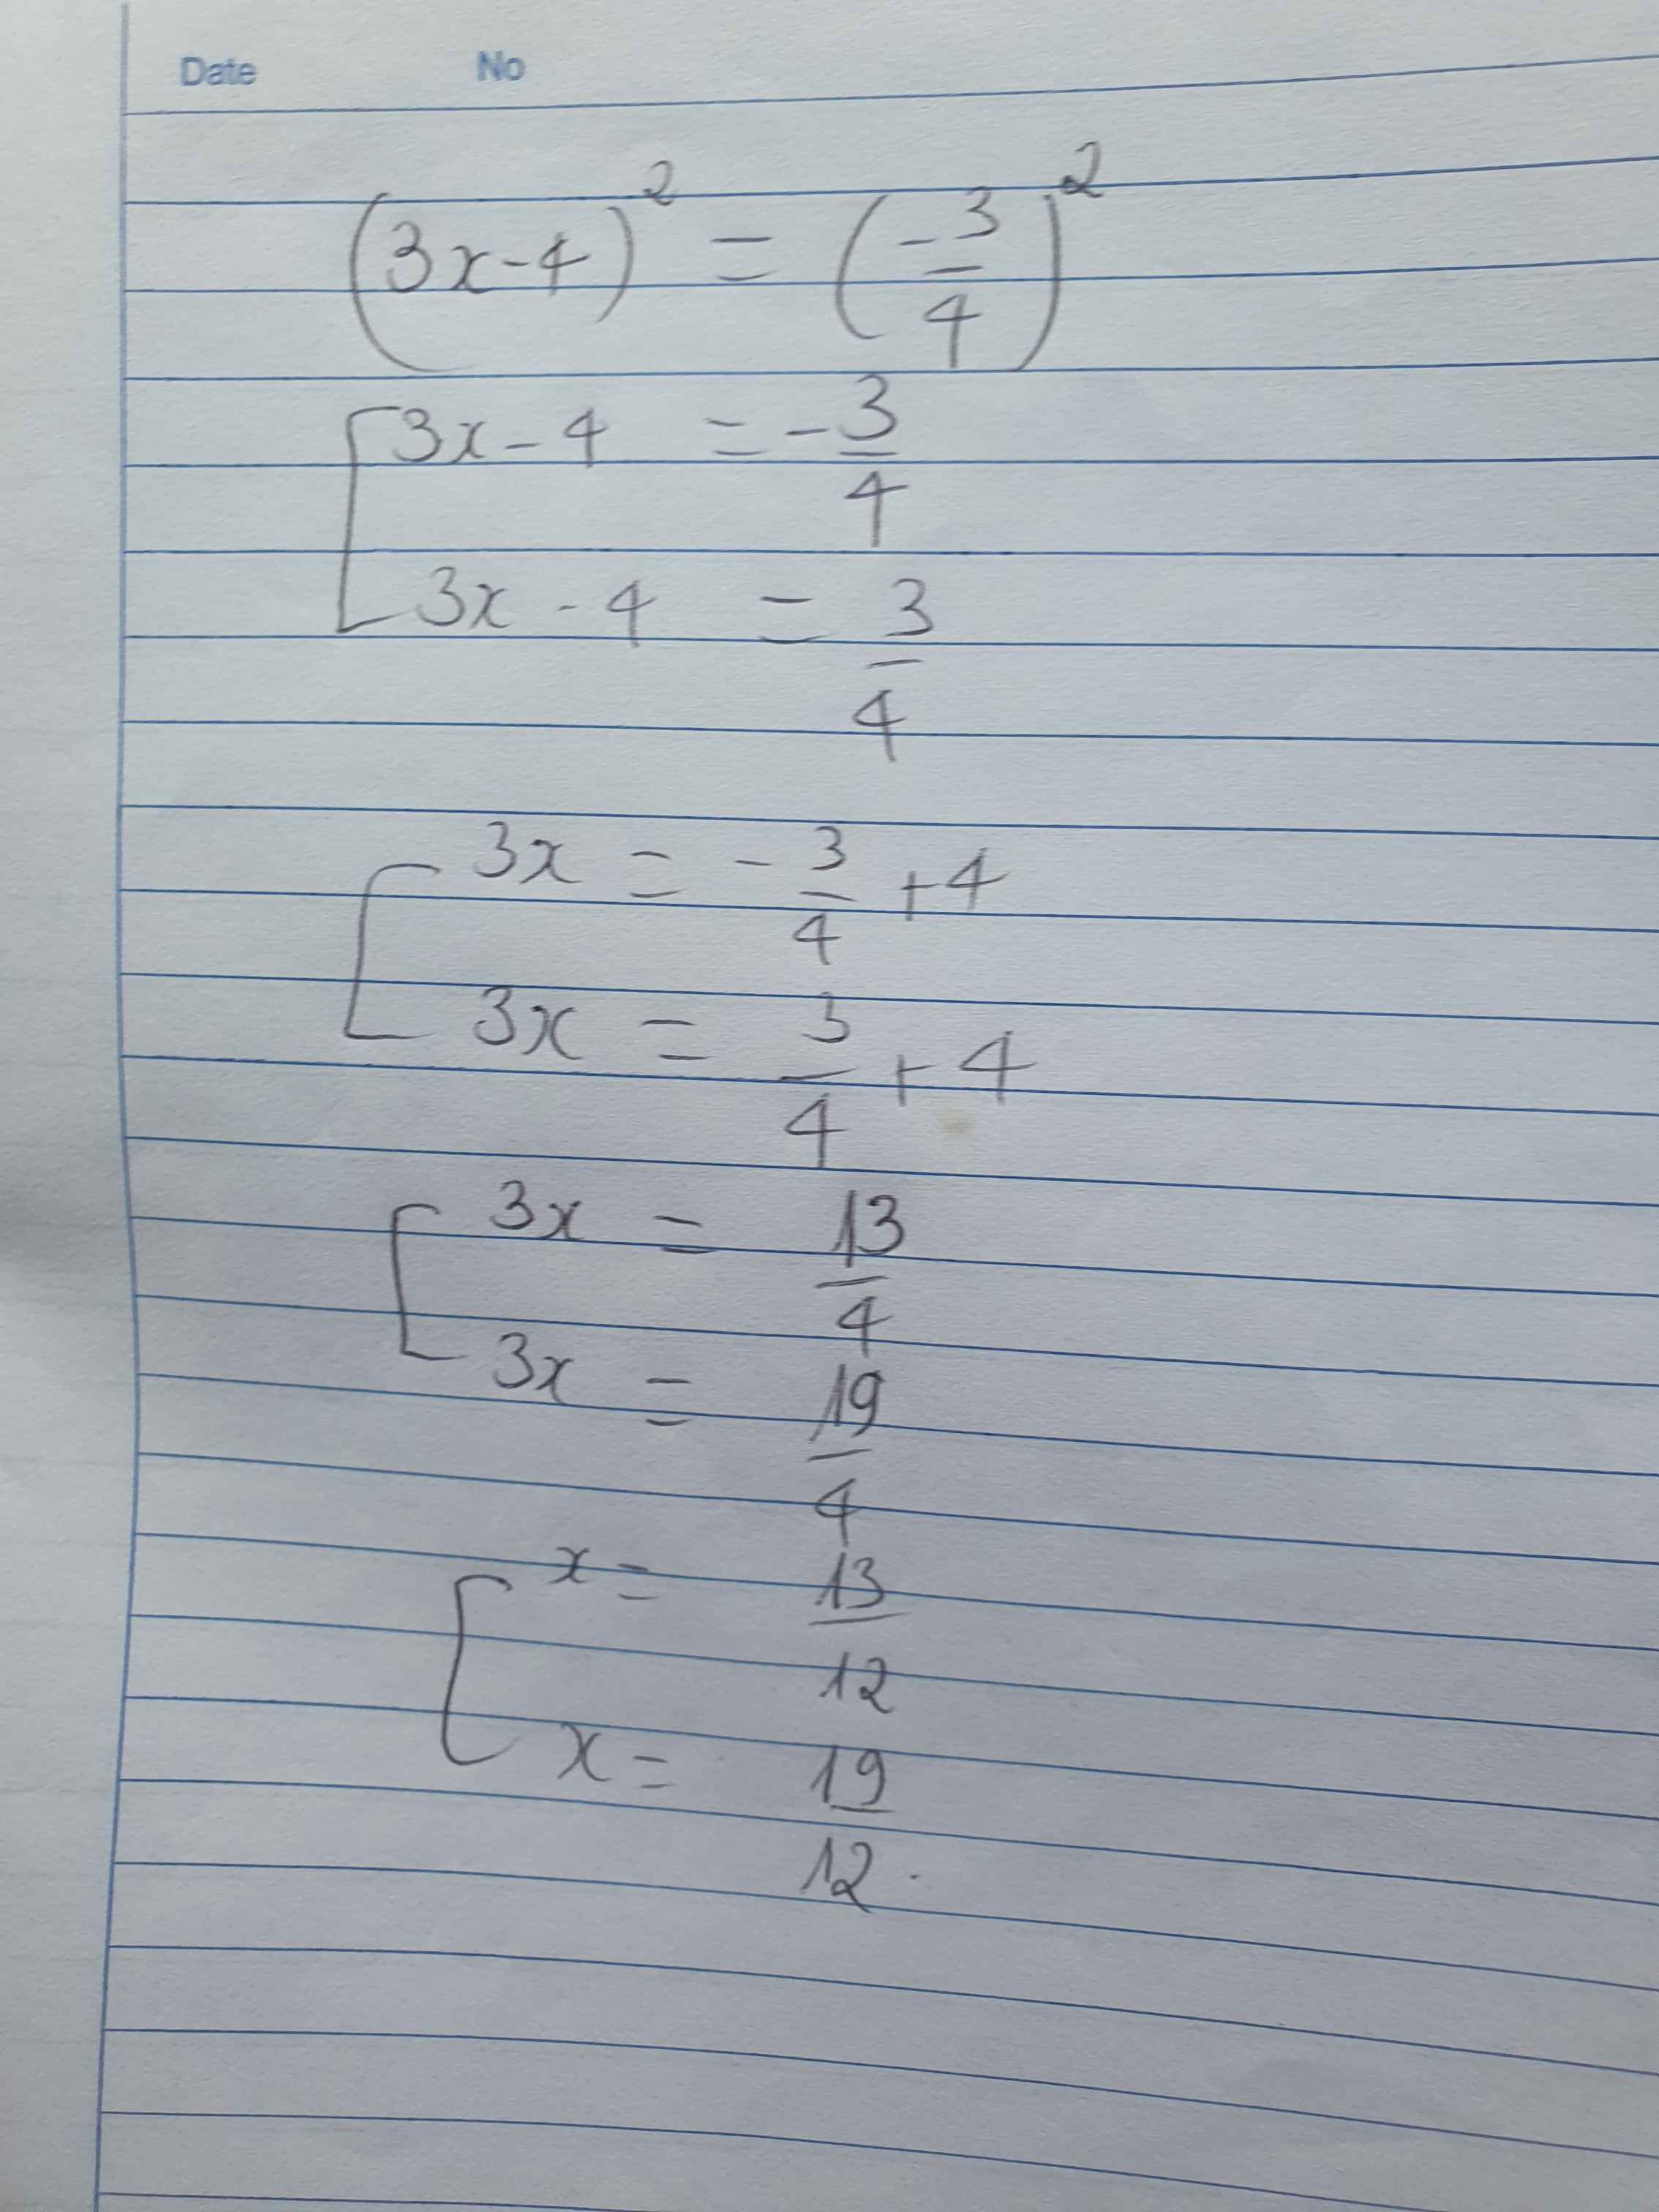 Date No
(3x-4)² = (-3/4)²
[ 3x-4 = -3/4
3x-4 = 3/4
[ 3x = -3/4 +4
3x = 3/4 +4
[ 3x = 13/4
3x = 19/4
[ x = 13/12
x = 19/12.